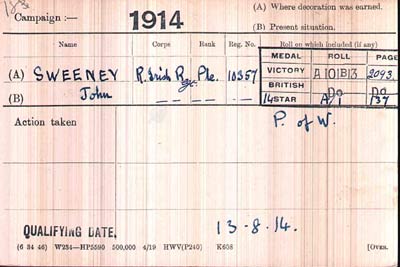 Campaign :— 1914 (A) Where decoration was earned.
(B) Present situation.
Name Corps Rank Reg. No. Roll on which included (if any)
MEDAL ROLL PAGE
(A) SWEENEY R. Irish Regt. Pte. 10357 VICTORY A101B13 2093.
(B) John BRITISH Do Do
14 STAR A/1 137
Action taken P. of W.
QUALIFYING DATE, 13-8-14.
(6 34 46) W234—HP5590 500,000 4/19 HWV(P240) K608 [OVER.